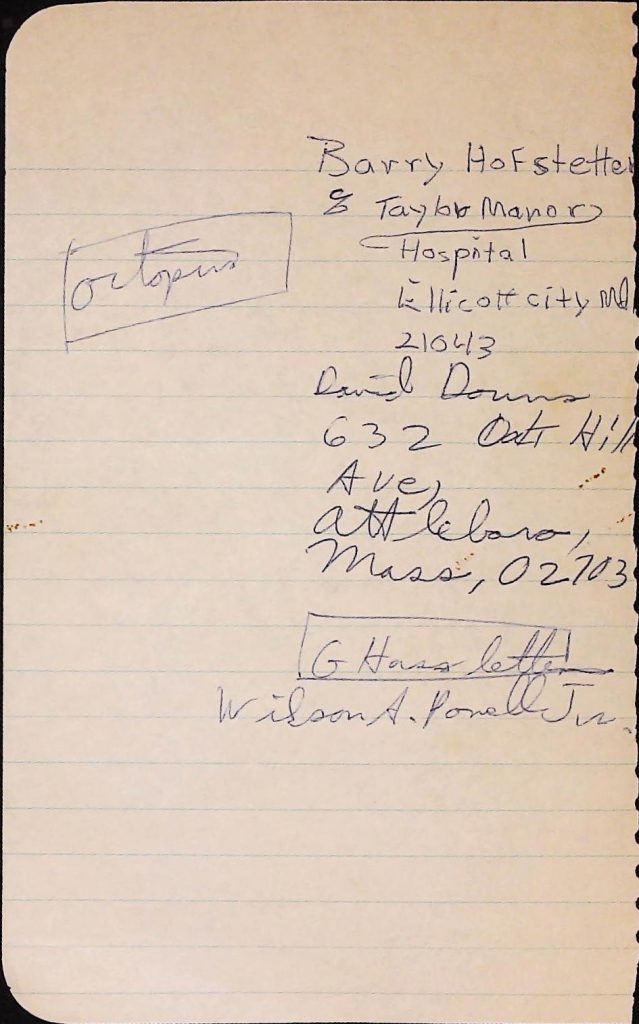 Barry Hofstetter
% Taylor Manor
Hospital
Ellicott city Md
21043
octopus
David Downs
632 Oak Hill
Ave,
Attleboro,
Mass, 02703
G Hass letter
Wilson A. Powell Jr.